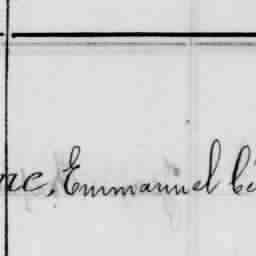 ne, Emmanuel